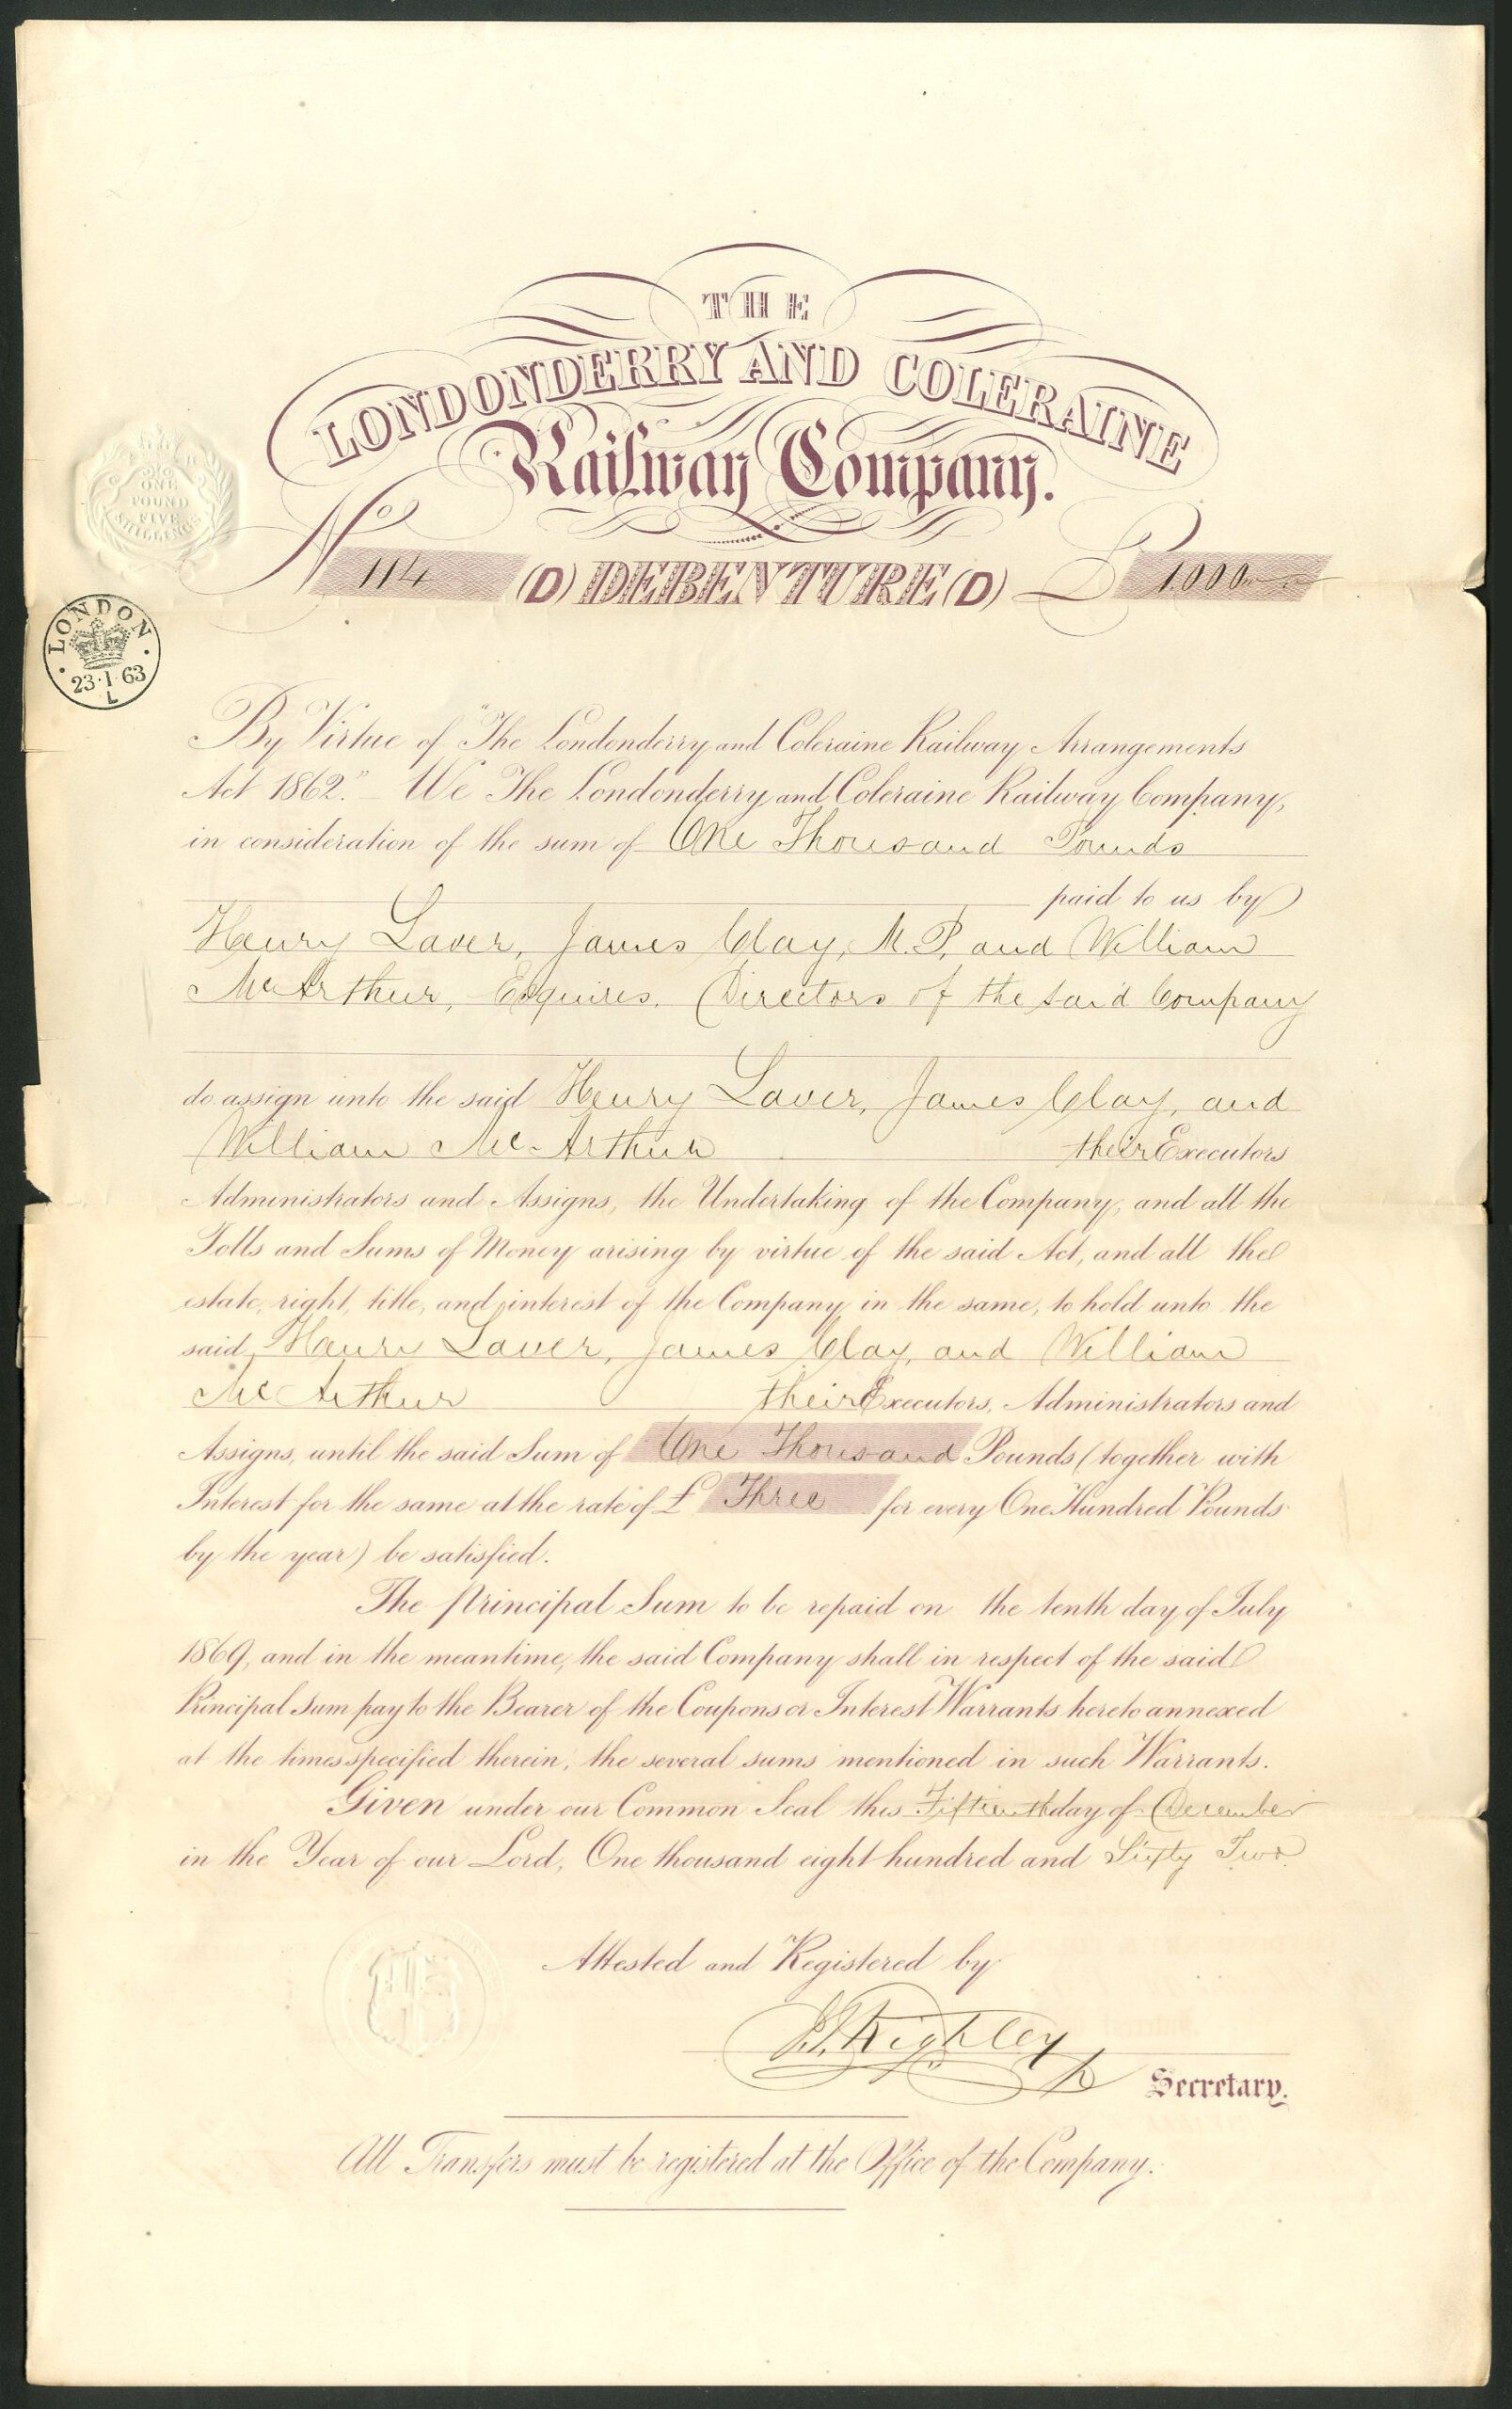 THE
LONDONDERRY AND COLERAINE
Railway Company.
ONE
POUND
FIVE
SHILLINGS
No 114 (D) DEBENTURE (D) £ 1.000
LONDON
23·1·63
L
By Virtue of "The Londonderry and Coleraine Railway Arrangements
Act 1862." We The Londonderry and Coleraine Railway Company,
in consideration of the sum of One Thousand Pounds
paid to us by
Henry Laver, James Clay, M.P. and William
McArthur, Esquires, Directors of the said Company
do assign unto the said Henry Laver, James Clay, and
William McArthur their Executors
Administrators and Assigns, the Undertaking of the Company, and all the
Tolls and Sums of Money arising by virtue of the said Act, and all the
estate, right, title, and interest of the Company in the same, to hold unto the
said Henry Laver, James Clay, and William
McArthur their Executors, Administrators and
Assigns, until the said Sum of One Thousand Pounds (together with
Interest for the same at the rate of £ Three for every One Hundred Pounds
by the year) be satisfied.
The Principal Sum to be repaid on the tenth day of July
1869, and in the meantime, the said Company shall in respect of the said
Principal Sum pay to the Bearer of the Coupons or Interest Warrants hereto annexed
at the times specified therein, the several sums mentioned in such Warrants.
Given under our Common Seal this Fifteenth day of December
in the Year of our Lord, One thousand eight hundred and Sixty Two
Attested and Registered by
Kighley
Secretary.
All Transfers must be registered at the Office of the Company.